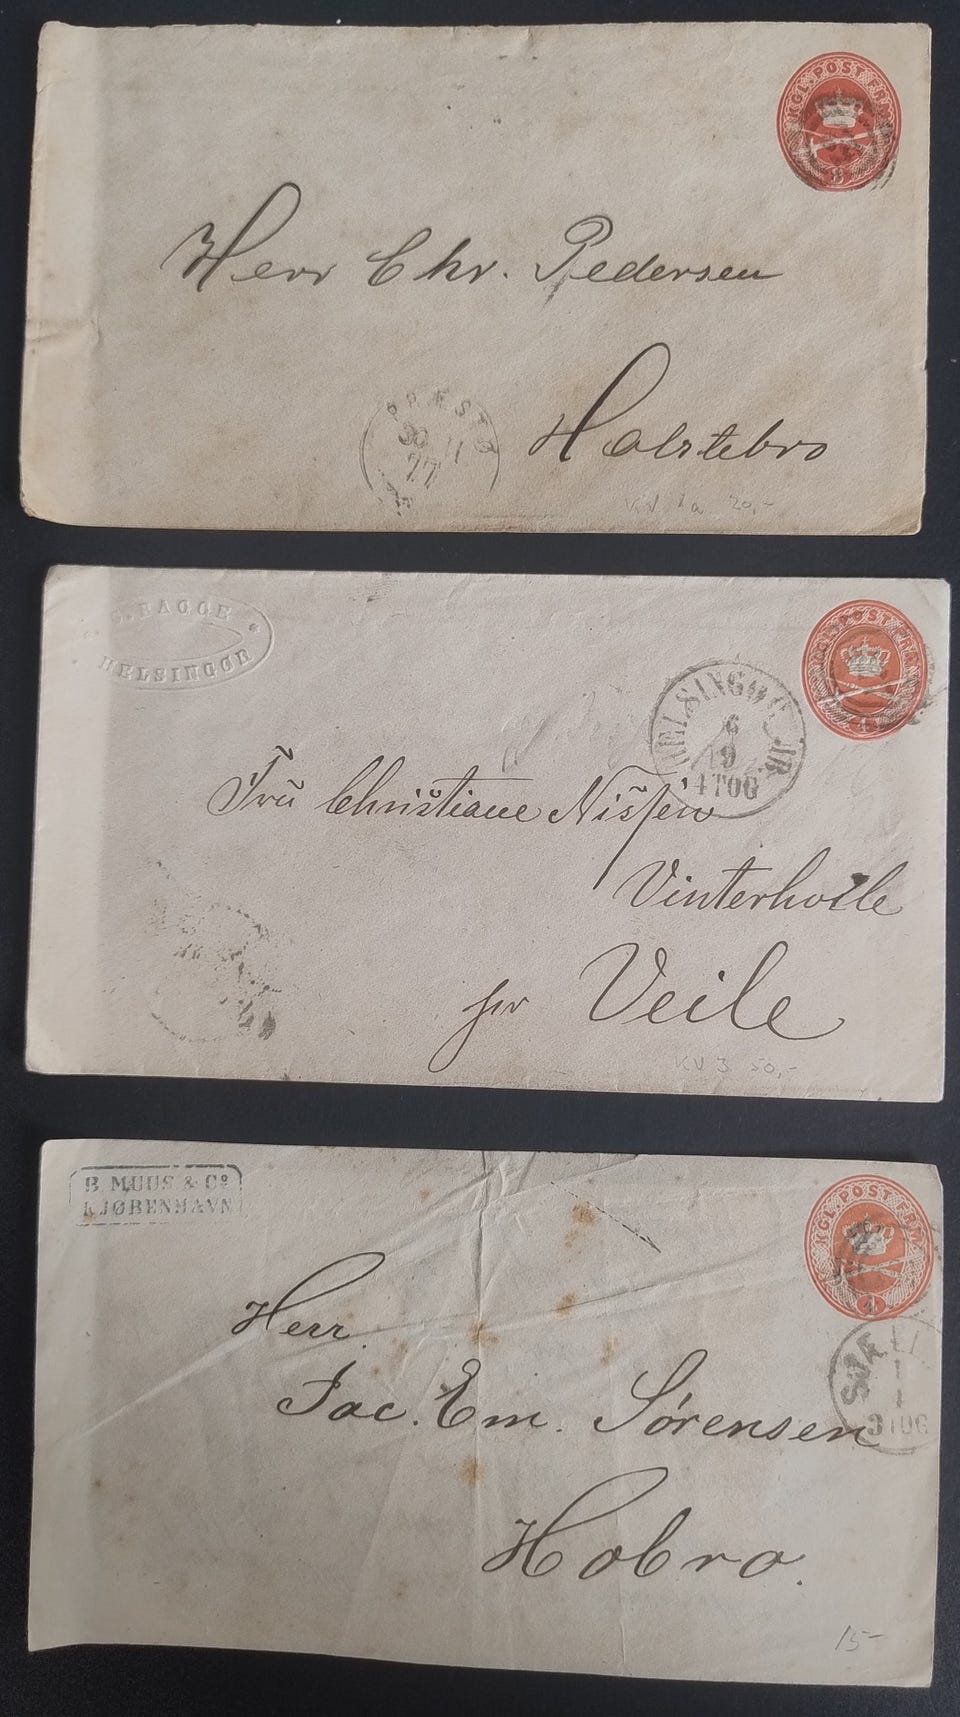 KGL. POST FRM
8
Herr Chr. Pedersen
Holstebro
PRÆSTØ
30 11
77
KV 1a 20,-
BAGGE
HELSINGØR
KGL. POST FRM
4
HELSINGØR
6
9
4TOG
Fru Christiane Nissen
Vinterhvile
pr Veile
KV 3 50,-
B. MUUS & Cº
KJØBENHAVN
KGL. POST FRM
4
SJÆLL
1
1
3TOG
Herr
Jac. Em. Sørensen
Hobro.
15-